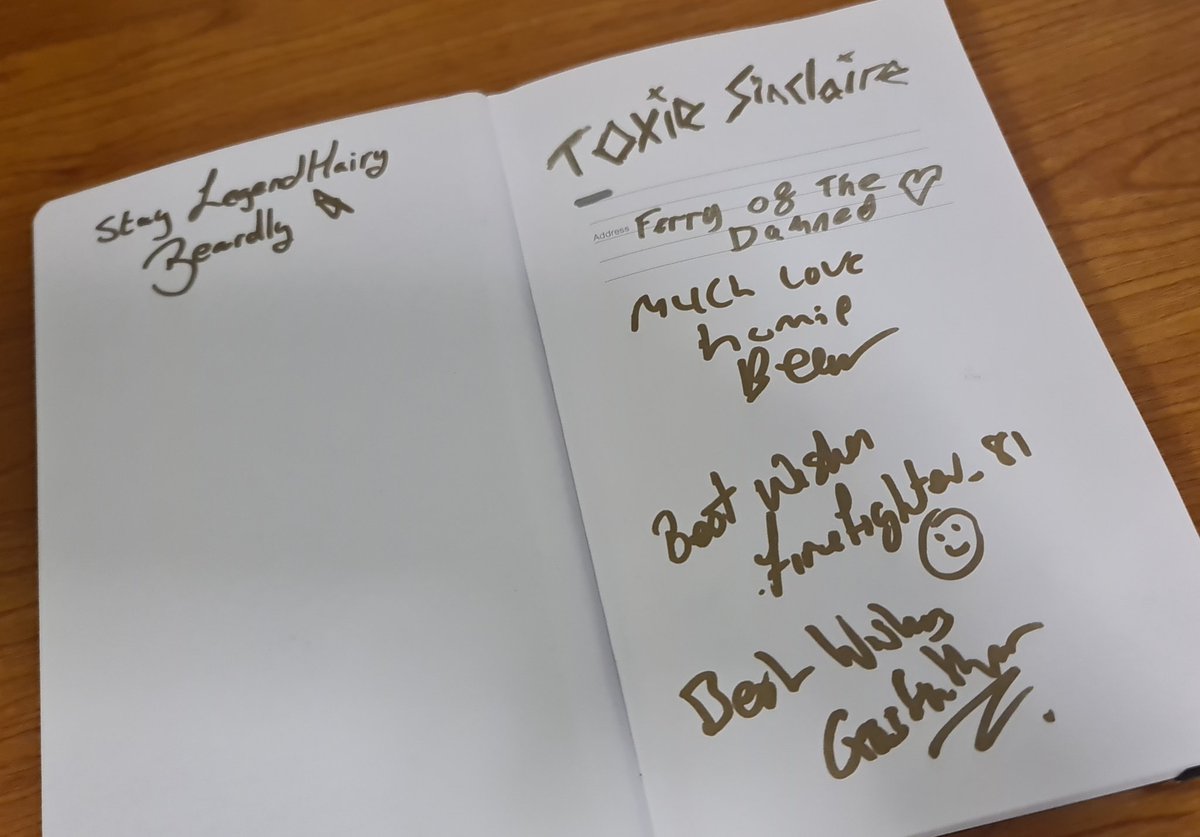 Stay LegendHairy
Beardly
Toxie Sinclaire
Address Ferry of The
Damned
Much Love
homie
Best Wishes
firefighter_81
Best Wishes